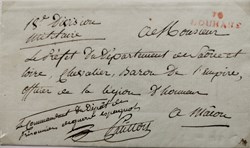 18e Division
militaire
70
LOUHANS
à Monsieur
Le Préfet du Département de Saône et
Loire Chevalier, Baron de l'empire,
officier de la Légion D'honneur
à Mâcon
Le Commandant du Dépôt des
Prisonniers de guerre espagnols